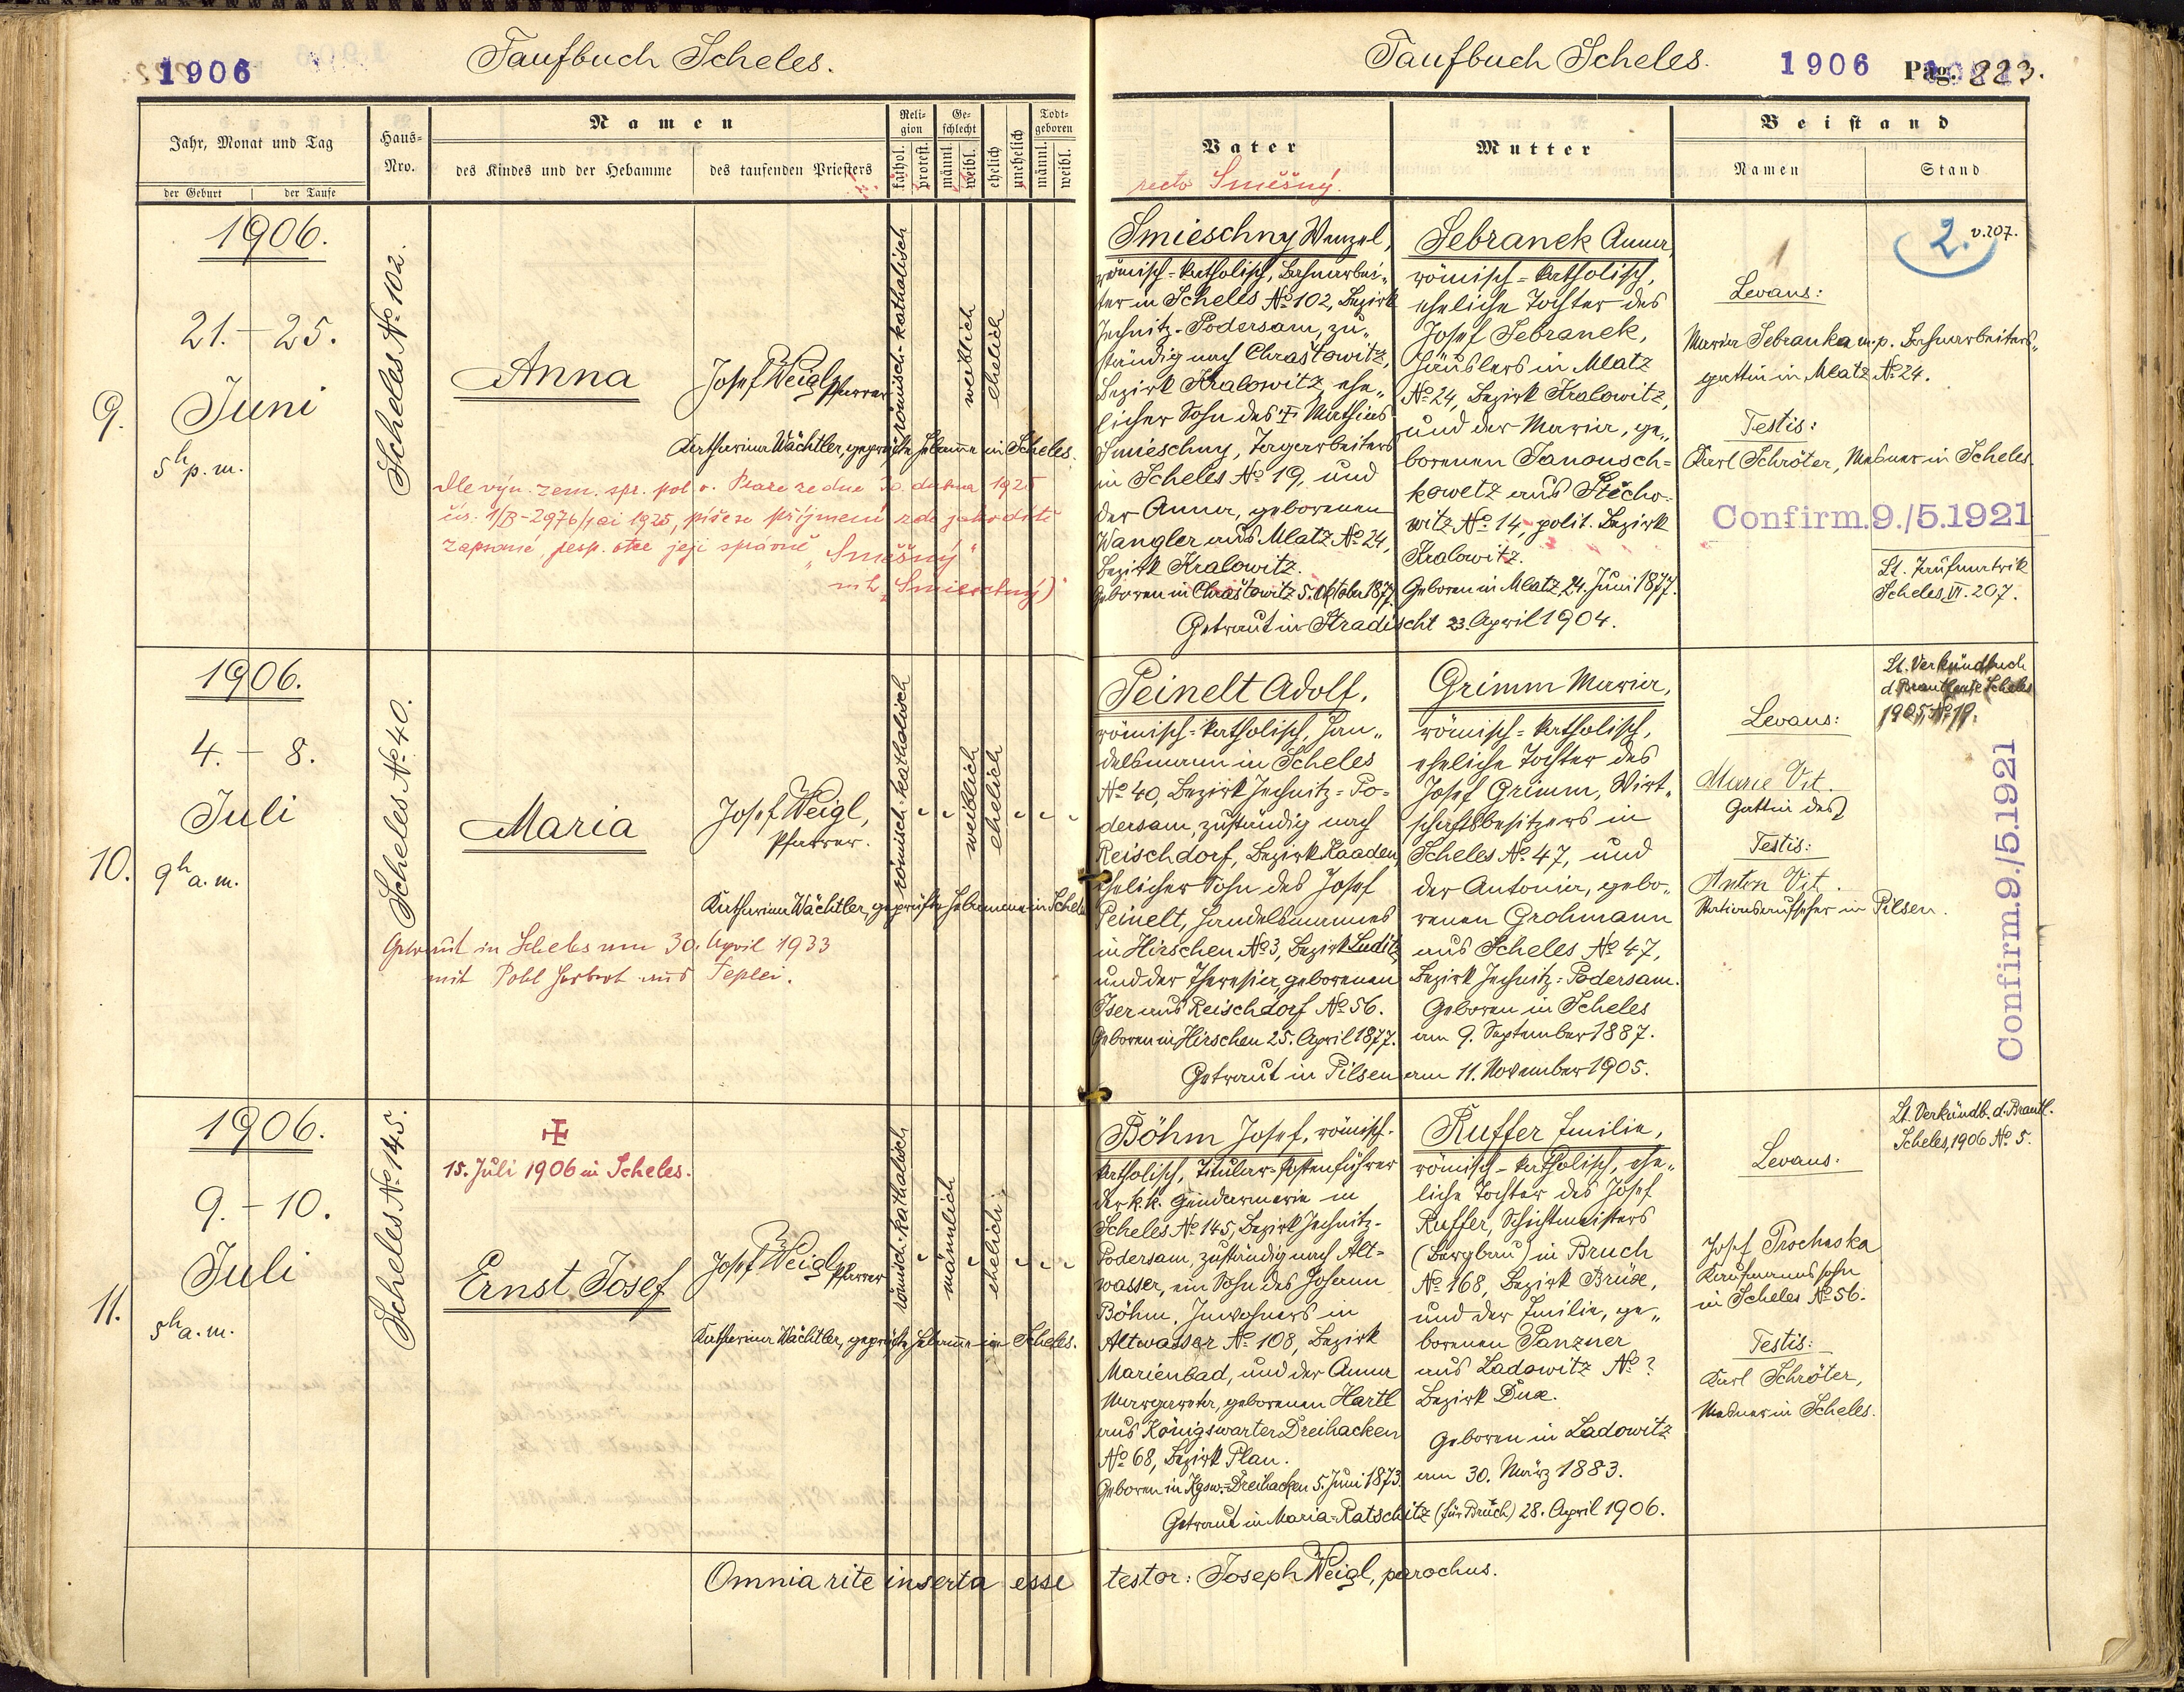 1906
Taufbuch Scheles.
Jahr, Monat und Tag
der Geburt
der Taufe
Haus-
Nro.
Namen
des Kindes und der Hebamme
des taufenden Priesters
Reli-
gion
kathol.
protest.
Ge-
schlecht
männl.
weibl.
ehelich
unehelich
Todt-
geboren
männl.
weibl.
1906.
9.
21. - 25.
Juni
5h p. m.
Scheles No 102.
Anna
Josef Weigl, Pfarrer
römisch-katholisch
weiblich
ehelich
Katharina Wächtler, geprüfte Hebamme in Scheles.
Dle výn. zem. spr. pol. v. Praze ze dne 30. dubna 1925
čís. 1/B-2976/1 ai 1925, píše se příjmení zde jako dítě
zapsané, resp. otce její správně „Směšný"
m. „Smieschný)"
1906.
10.
4. - 8.
Juli
9h a. m.
Scheles No 40.
Maria
Josef Weigl,
Pfarrer.
römisch-katholisch
weiblich
ehelich
Katharina Wächtler, geprüfte Hebamme in Scheles
Getraut in Scheles am 30. April 1933
mit Pohl Herbert aus Teplei.
1906.
11.
9. - 10.
Juli
5h a. m.
Scheles No 145.
15. Juli 1906 in Scheles.
Ernst Josef
Josef Weigl, Pfarrer
römisch-katholisch
männlich
ehelich
Katharina Wächtler, geprüfte Hebamme in Scheles.
Omnia rite inserta esse
Taufbuch Scheles.
1906
Pag. 223.
Vater
recte Směšný.
Mutter
Beistand
Namen
Stand
Smieschny Wenzel,
römisch-katholisch, Bahnarbei-
ter in Scheles No 102, Bezirk
Jechnitz-Podersam, zu-
ständig nach Chraštowitz,
Bezirk Kralowitz, ehe-
licher Sohn des † Mathias
Smieschny, Tagarbeiters
in Scheles No 19, und
der Anna, geborenen
Wangler aus Mlatz No 24,
Bezirk Kralowitz.
Geboren in Chraštowitz 5. Oktober 1877.
Sebranek Anna,
römisch-katholisch,
eheliche Tochter des
Josef Sebranek,
Häuslers in Mlatz
No 24, Bezirk Kralowitz,
und der Maria, ge-
borenen Janousch-
kowetz aus Stěcho-
witz No 14, polit. Bezirk
Kralowitz.
Geboren in Mlatz, 24. Juni 1877.
Getraut in Hradischt 23. April 1904.
2. v. 207.
Levans:
Maria Sebranka m.p. Bahnarbeiters-
gattin in Mlatz No 24.
Testis:
Karl Schröter, Mesner in Scheles.
Confirm. 9./5.1921
Lt. Taufmatrik
Scheles, VI. 207.
Peinelt Adolf,
römisch-katholisch, Han-
delsmann in Scheles
No 40, Bezirk Jechnitz-Po-
dersam, zuständig nach
Reischdorf, Bezirk Kaaden,
ehelicher Sohn des Josef
Peinelt, Handelsmannes
in Hirschen No 3, Bezirk Luditz,
und der Theresia, geborenen
Iser aus Reischdorf No 56.
Geboren in Hirschen 25. April 1877.
Grimm Maria,
römisch-katholisch,
eheliche Tochter des
Josef Grimm, Wirt-
schaftsbesitzers in
Scheles No 47, und
der Antonia, gebo-
renen Grohmann
aus Scheles No 47,
Bezirk Jechnitz-Podersam.
Geboren in Scheles
am 9. September 1887.
Getraut in Pilsen am 11. November 1905.
Lt. Verkündbuch
d. Brautleute Scheles
1905, No 19.
Levans:
Marie Vit.
Gattin des
Testis:
Anton Vit.
Stationsaufseher in Pilsen.
Confirm. 9./5.1921
Böhm Josef, römisch-
katholisch, Titular-Postenführer
der k. k. Gendarmerie in
Scheles No 145, Bezirk Jechnitz-
Podersam, zuständig nach Alt-
wasser, ein Sohn des Johann
Böhm, Inwohners in
Altwasser No 108, Bezirk
Marienbad, und der Anna
Margareta, geborenen Hartl
aus Königswarter Dreihacken
No 68, Bezirk Plan.
Geboren in Kgsw.-Dreihacken 5. Juni 1873.
Ruffer Emilie,
römisch-katholisch, ehe-
liche Tochter des Josef
Ruffer, Schichtmeisters
(Bergbau) in Bruch
No 168, Bezirk Brüx,
und der Emilie, ge-
borenen Panzner
aus Ladowitz No ?
Bezirk Dux.
Geboren in Ladowitz
am 30. März 1883.
Getraut in Maria-Ratschitz (für Bruch) 28. April 1906.
Lt. Verkündb. d. Brautl.
Scheles, 1906 No 5.
Levans.
Josef Prochaska
Kaufmannssohn
in Scheles No 56.
Testis:
Karl Schröter,
Mesner in Scheles.
testor: Joseph Weigl, parochus.